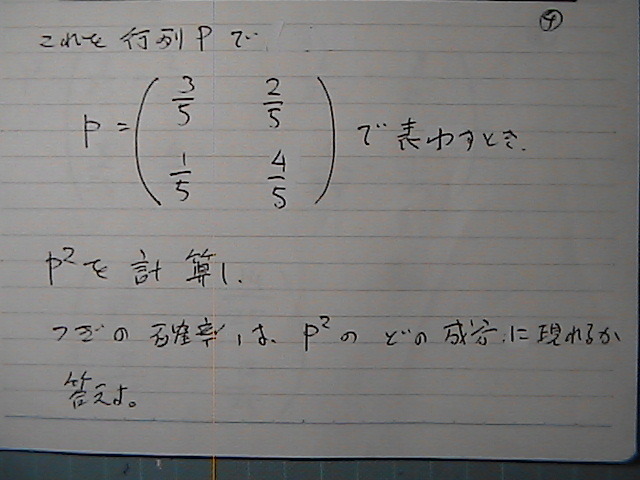 ④
これを行列Pで
P = ( 3/5 2/5
1/5 4/5 ) で表わすとき、
P²を計算し、
つぎの確率は、P²のどの成分に現れるか
答えよ。